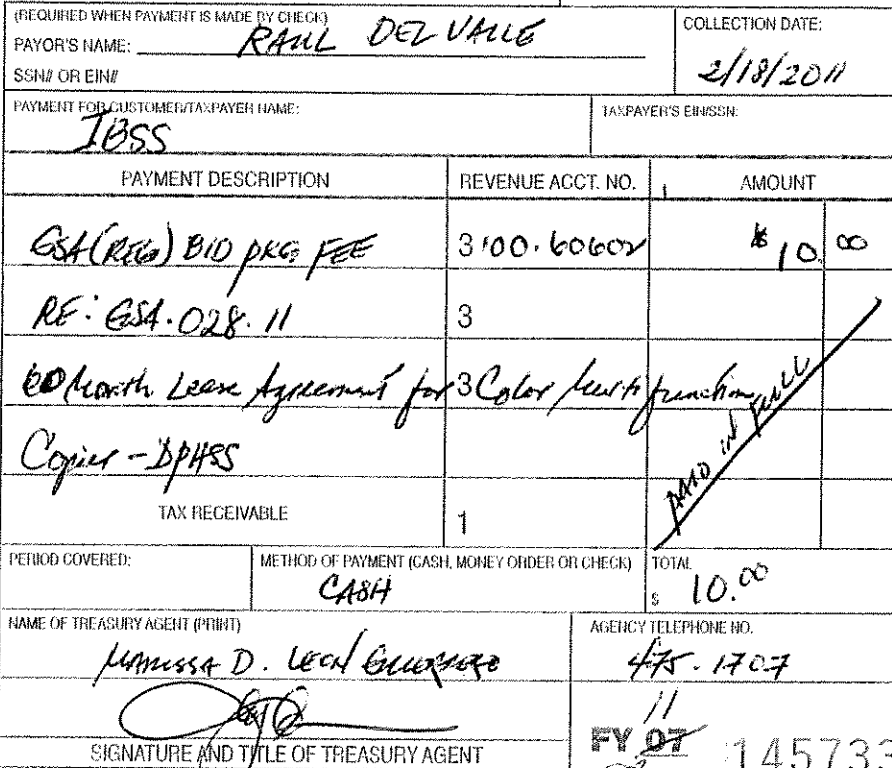 (REQUIRED WHEN PAYMENT IS MADE BY CHECK)
PAYOR'S NAME: RAUL DEL VALLE
SSN# OR EIN#
COLLECTION DATE:
2/18/2011
PAYMENT FOR CUSTOMER/TAXPAYER NAME:
IBSS
TAXPAYER'S EIN/SSN:
PAYMENT DESCRIPTION REVENUE ACCT. NO. AMOUNT
GSA(REG) BID PKG FEE 3100.60602 $10.00
RE: GSA.028.11 3
60 Month Lease Agreement for 3 Color Multi function
Copier - DPHSS
PAID IN FULL
TAX RECEIVABLE 1
PERIOD COVERED:
METHOD OF PAYMENT (CASH, MONEY ORDER OR CHECK)
CASH
TOTAL
$ 10.00
NAME OF TREASURY AGENT (PRINT)
MARISSA D. LEON GUERRERO
AGENCY TELEPHONE NO.
475-1707
SIGNATURE AND TITLE OF TREASURY AGENT
11
FY 07 145733